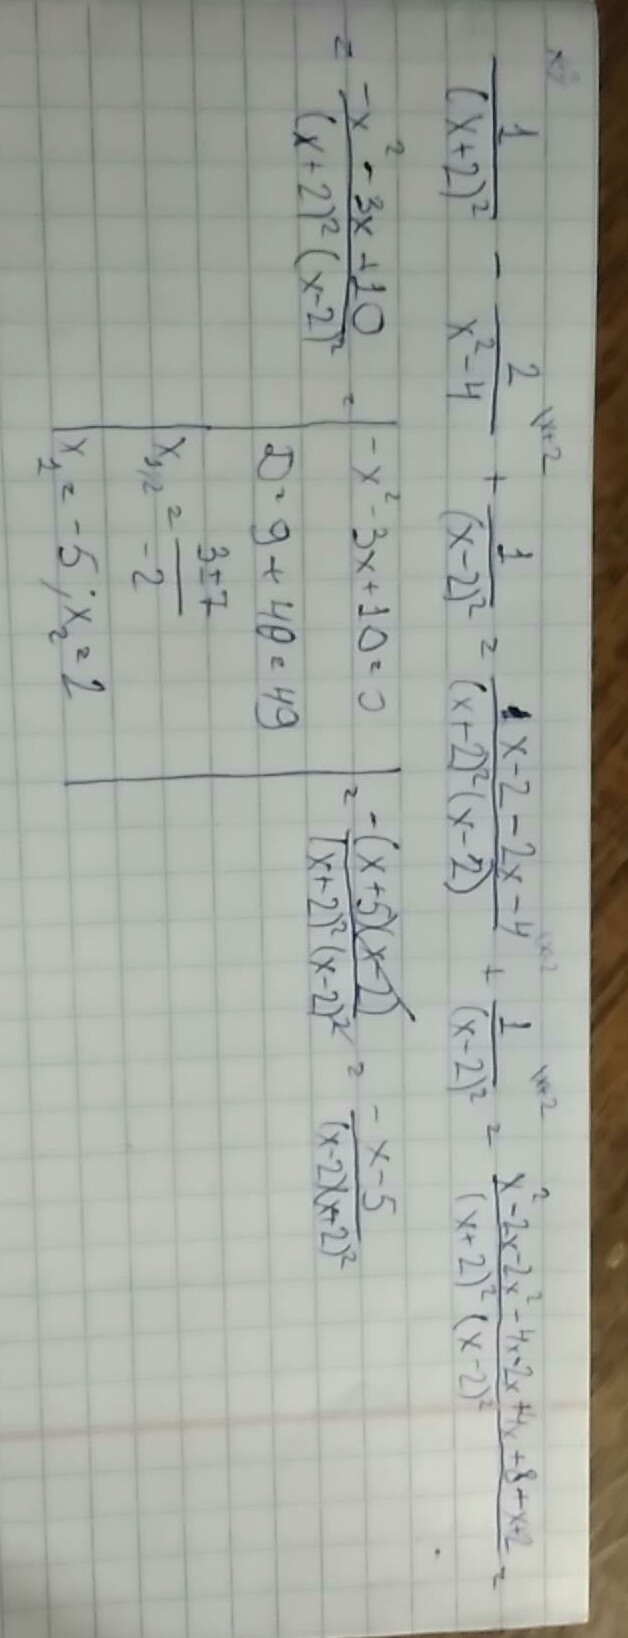 1/(x+2)² - 2/(x²-4) \x+2 + 1/(x-2)² = (x-2-2x-4)/((x+2)²(x-2)) \x-2 + 1/(x-2)² \x+2 = (x²-2x-2x²-4x-2x+4x+8+x+2)/((x+2)²(x-2)²) =
= (-x²-3x+10)/((x+2)²(x-2)²) =
-x²-3x+10=0
D=9+40=49
x₁,₂ = (3±7)/(-2)
x₁=-5; x₂=2
= (-(x+5)(x-2))/((x+2)²(x-2)²) = (-x-5)/((x-2)(x+2)²)